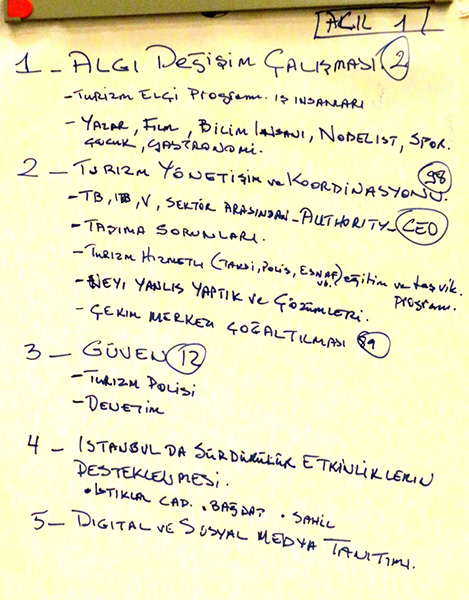 ACİL 1
1 - ALGI DEĞİŞİM ÇALIŞMASI 2
- TURİZM ELÇİ PROGRAMI. İŞ İNSANLARI
- YAZAR, FİLM, BİLİM İNSANI, NOBELIST, SPOR.
ÇOCUK, GASTRONOMİ.
2 - TURİZM YÖNETİŞİM ve KOORDİNASYONU. 98
- TB, İBB, V, SEKTÖR ARASINDAN - AUTHORITY - CEO
- TAŞIMA SORUNLARI.
- TURİZM HİZMETLİ (TAKSİ, POLİS, ESNAF vb.) eğitim ve teşvik
program.
- NEYİ YANLIŞ YAPTIK ve ÇÖZÜMLERİ.
- ÇEKİM MERKEZİ ÇOĞALTILMASI 59
3 - GÜVEN 12
- TURİZM POLİSİ
- DENETİM
4 - İSTANBUL DA SÜRDÜRÜLÜR ETKİNLİKLERİN
DESTEKLENMESİ.
• İSTİKLAL CAD. • BAĞDAT • SAHİL
5 - DIGITAL VE SOSYAL MEDYA TANITIMI.